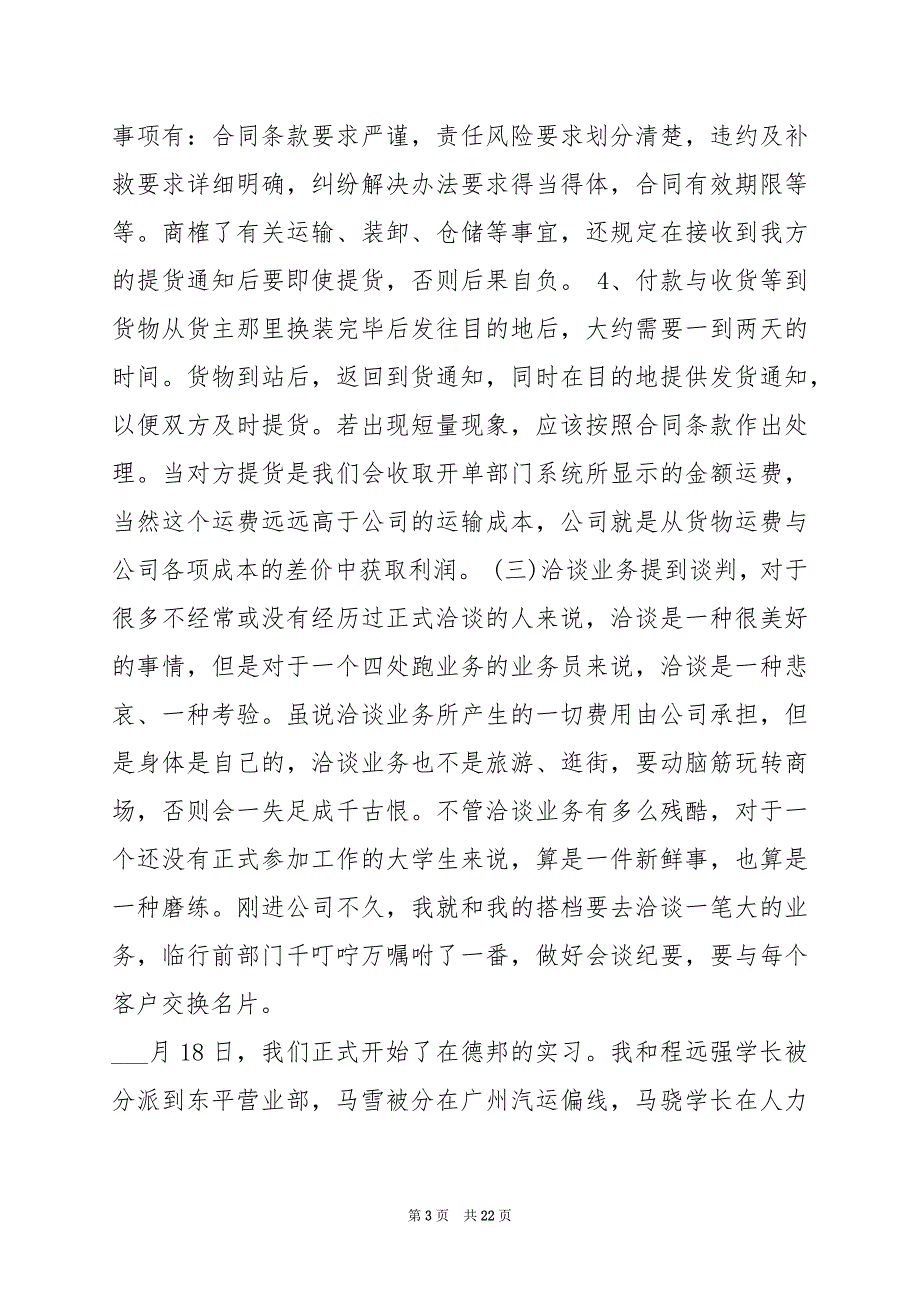 事项有：合同条款要求严谨，责任风险要求划分清楚，违约及补
救要求详细明确，纠纷解决办法要求得当得体，合同有效期限等
等。商榷了有关运输、装卸、仓储等事宜，还规定在接收到我方
的提货通知后要即使提货，否则后果自负。 4、付款与收货等到
货物从货主那里换装完毕后发往目的地后，大约需要一到两天的
时间。货物到站后，返回到货通知，同时在目的地提供发货通知，
以便双方及时提货。若出现短量现象，应该按照合同条款作出处
理。当对方提货是我们会收取开单部门系统所显示的金额运费，
当然这个运费远远高于公司的运输成本，公司就是从货物运费与
公司各项成本的差价中获取利润。 (三)洽谈业务提到谈判，对于
很多不经常或没有经历过正式洽谈的人来说，洽谈是一种很美好
的事情，但是对于一个四处跑业务的业务员来说，洽谈是一种悲
哀、一种考验。虽说洽谈业务所产生的一切费用由公司承担，但
是身体是自己的，洽谈业务也不是旅游、逛街，要动脑筋玩转商
场，否则会一失足成千古恨。不管洽谈业务有多么残酷，对于一
个还没有正式参加工作的大学生来说，算是一件新鲜事，也算是
一种磨练。刚进公司不久，我就和我的搭档要去洽谈一笔大的业
务，临行前部门千叮咛万嘱咐了一番，做好会谈纪要，要与每个
客户交换名片。
___月 18 日，我们正式开始了在德邦的实习。我和程远强学长被
分派到东平营业部，马雪被分在广州汽运偏线，马骁学长在人力
第 3 页 共 22 页